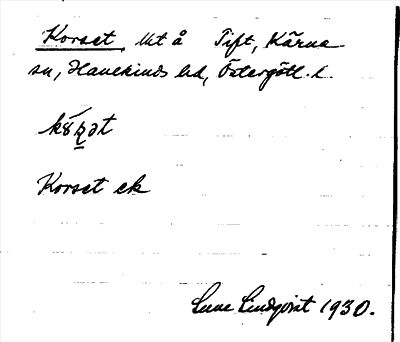 Korset, Ut å Tift, Kärna
sn, Hanekinds hd, Östergötl. l.
Korset ek
Sune Lindqvist 1930.